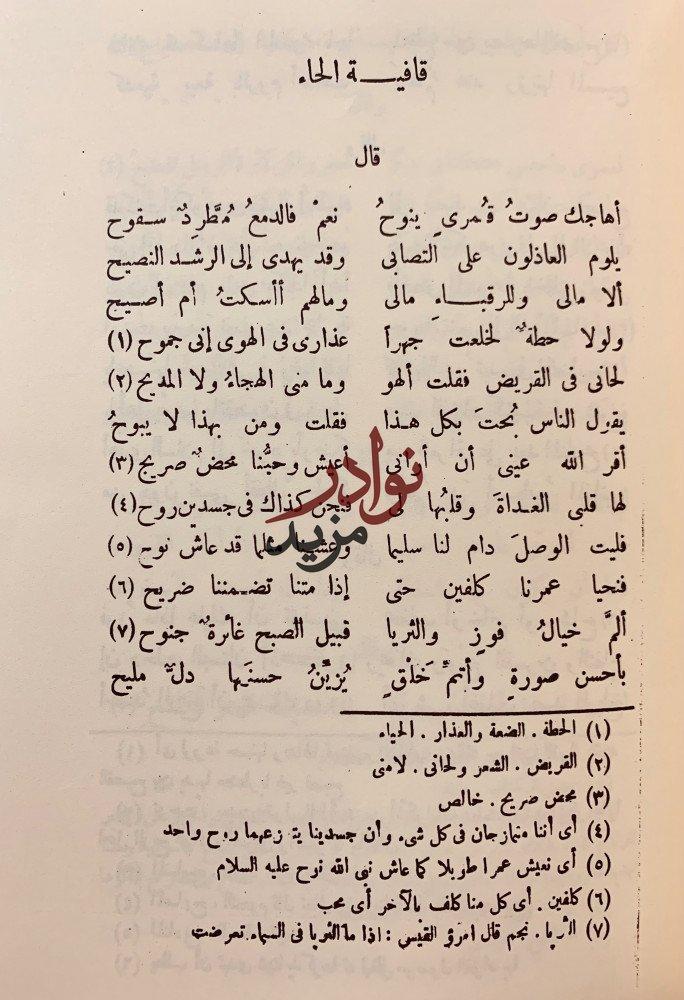 قافيـــة الحاء
قال
أهاجك صوتُ قُمرىٍ ينوحُ نعمْ فالدمعُ مُطَّرِدٌ سـفوح
يلوم العاذلون على التصابى وقد يهدى إلى الرشد النصيح
ألا مالى وللرقبـــاءِ مالى ومالهم أأسكتُ أم أصـيح
ولولا حطةٌ لخلعت جهراً عذارى فى الهوى إنى جموح (١)
لحانى فى القريض فقلت ألهو وما منى الهجاءُ ولا المديح (٢)
يقول الناس بُحتَ بكل هـذا فقلت ومن بهذا لا يبوحُ
أقر الله عينى أن أرانى أعيش وحبُّنا محضٌ صريح (٣)
لها قلبى الغـداةَ وقلبُها لى فنحن كذاك فى جسدين روح (٤)
فليت الوصلَ دام لنا سليما وعشنا مثلما قد عاش نوح (٥)
فنحيا عمرنا كلفين حتى إذا متنا تضـمننا ضريح (٦)
ألمَّ خيالُ فوزٍ والثريا قبيل الصبح غائرةٌ جنوح (٧)
بأحسن صورةٍ وأتمِّ خَلْقٍ يُزيِّنُ حسنَها دلٌّ مليح
(١) الحطة . الضعة والعذار . الحياء
(٢) القريض . الشعر ولحانى . لامنى
(٣) محض صريح . خالص
(٤) أى أننا متمازجان فى كل شىء وأن جسدينا يتوزعهما روح واحد
(٥) أى نعيش عمرا طويلا كما عاش نبى الله نوح عليه السلام
(٦) كلفين . أى كل منا كلف بالآخر أى محب
(٧) الثريا . نجم قال امرؤ القيس : اذا ما الثريا فى السماء تعرضت
نوادر
مزيد